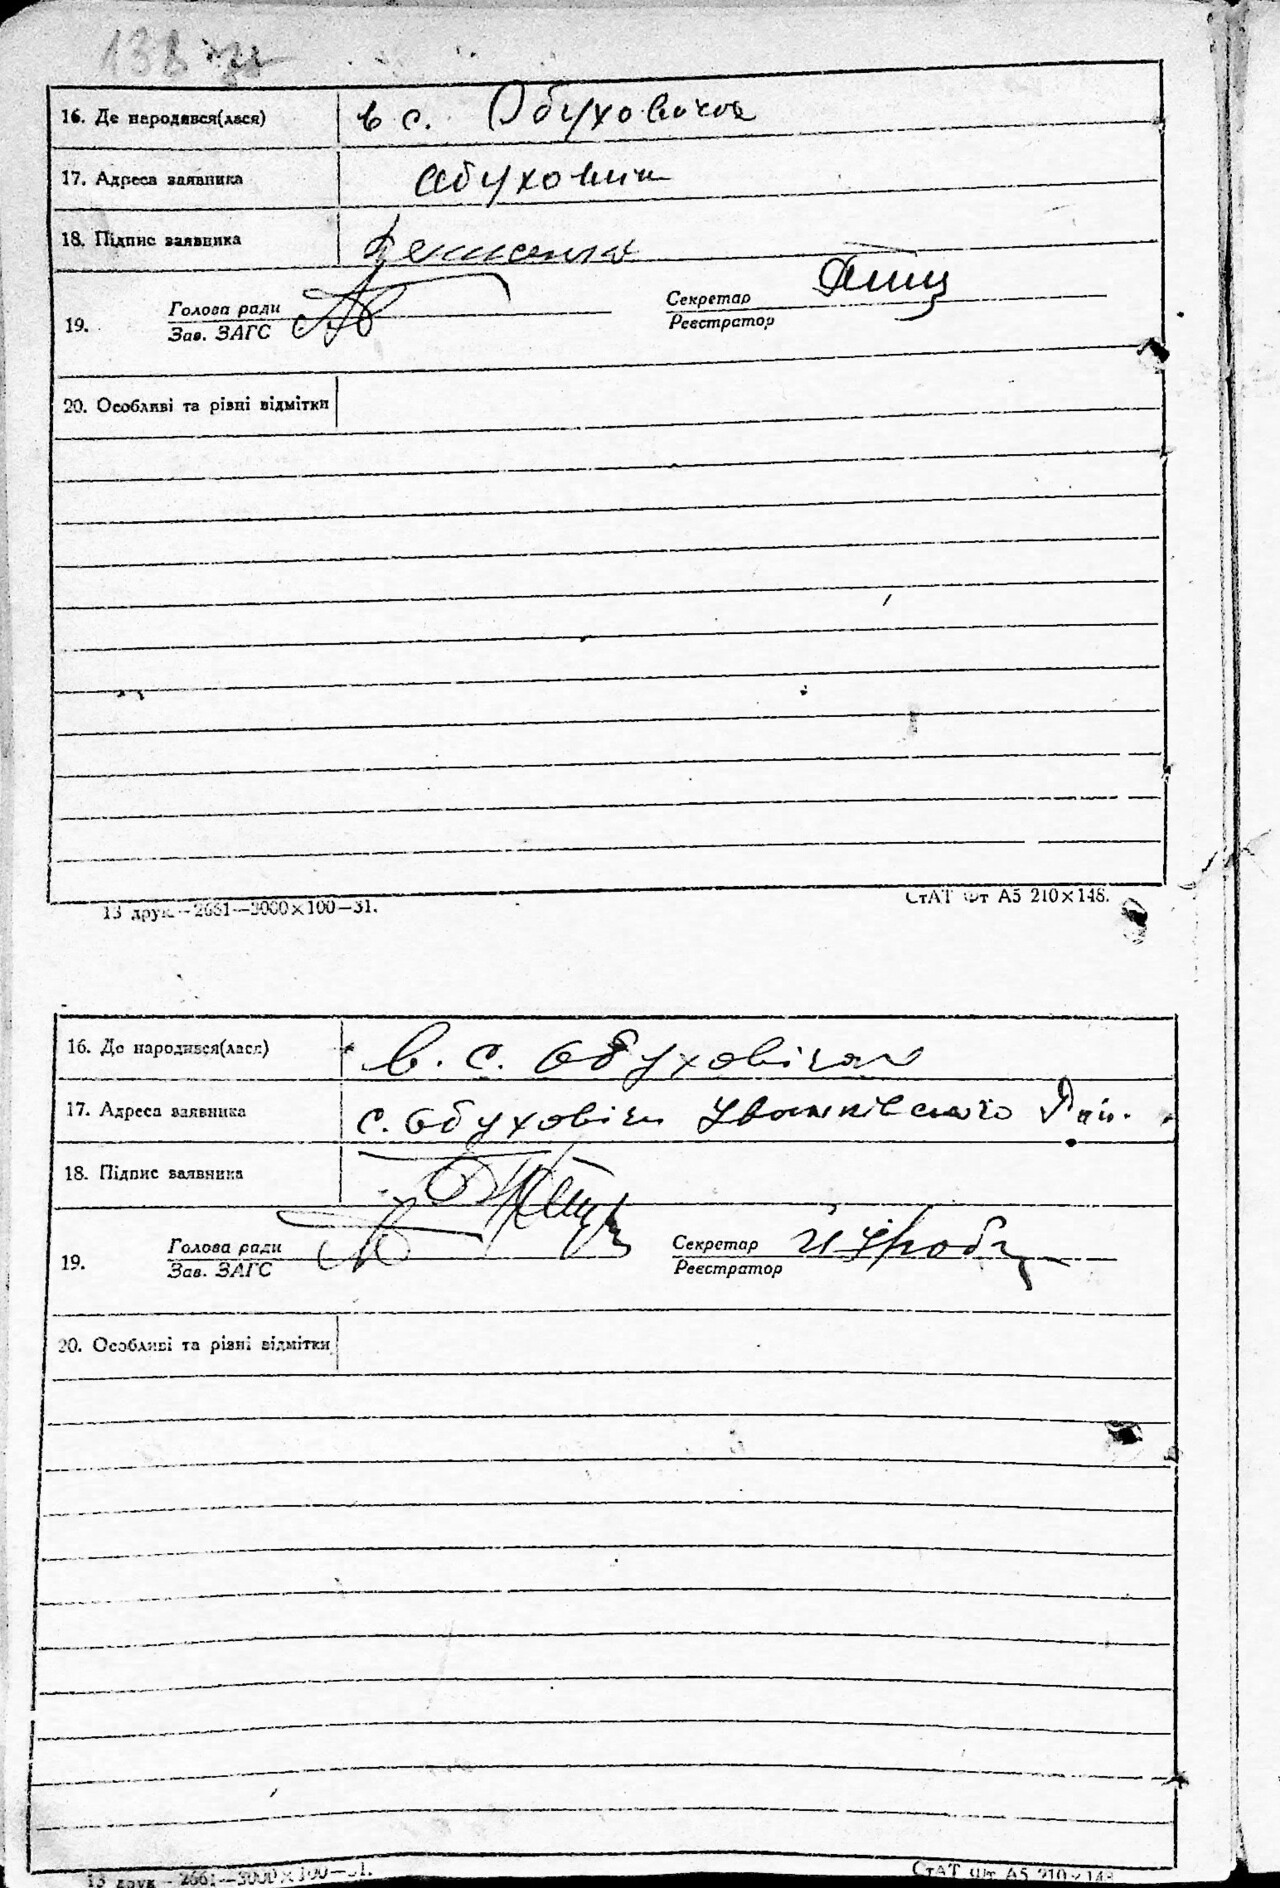 138 зв
16. Де народився(лася) в с. Обуховичах
17. Адреса заявника Обуховичи
18. Підпис заявника
19. Голова ради
Зав. ЗАГС
Секретар
Реєстратор
20. Особливі та рівні відмітки
13 друк.—2661—3000×100—31. СтАТ Фт А5 210×148.
16. Де народився(лася) в. с. Обуховічах
17. Адреса заявника с. Обуховічи Іванківського Рай.
18. Підпис заявника
19. Голова ради
Зав. ЗАГС
Секретар
Реєстратор
20. Особливі та рівні відмітки
13 друк.—2661—3000×100—31. СтАТ Фт А5 210×148